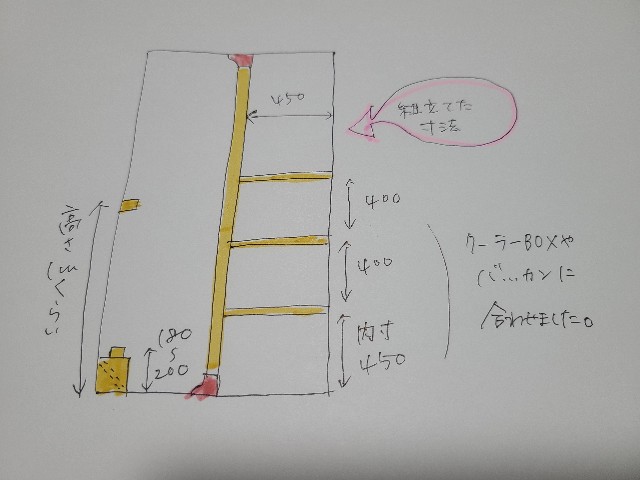 450
組立てた
寸法
400
400
内寸
450
高さ1mくらい
180
〜
200
クーラーBOXや
バッカンに
合わせました。